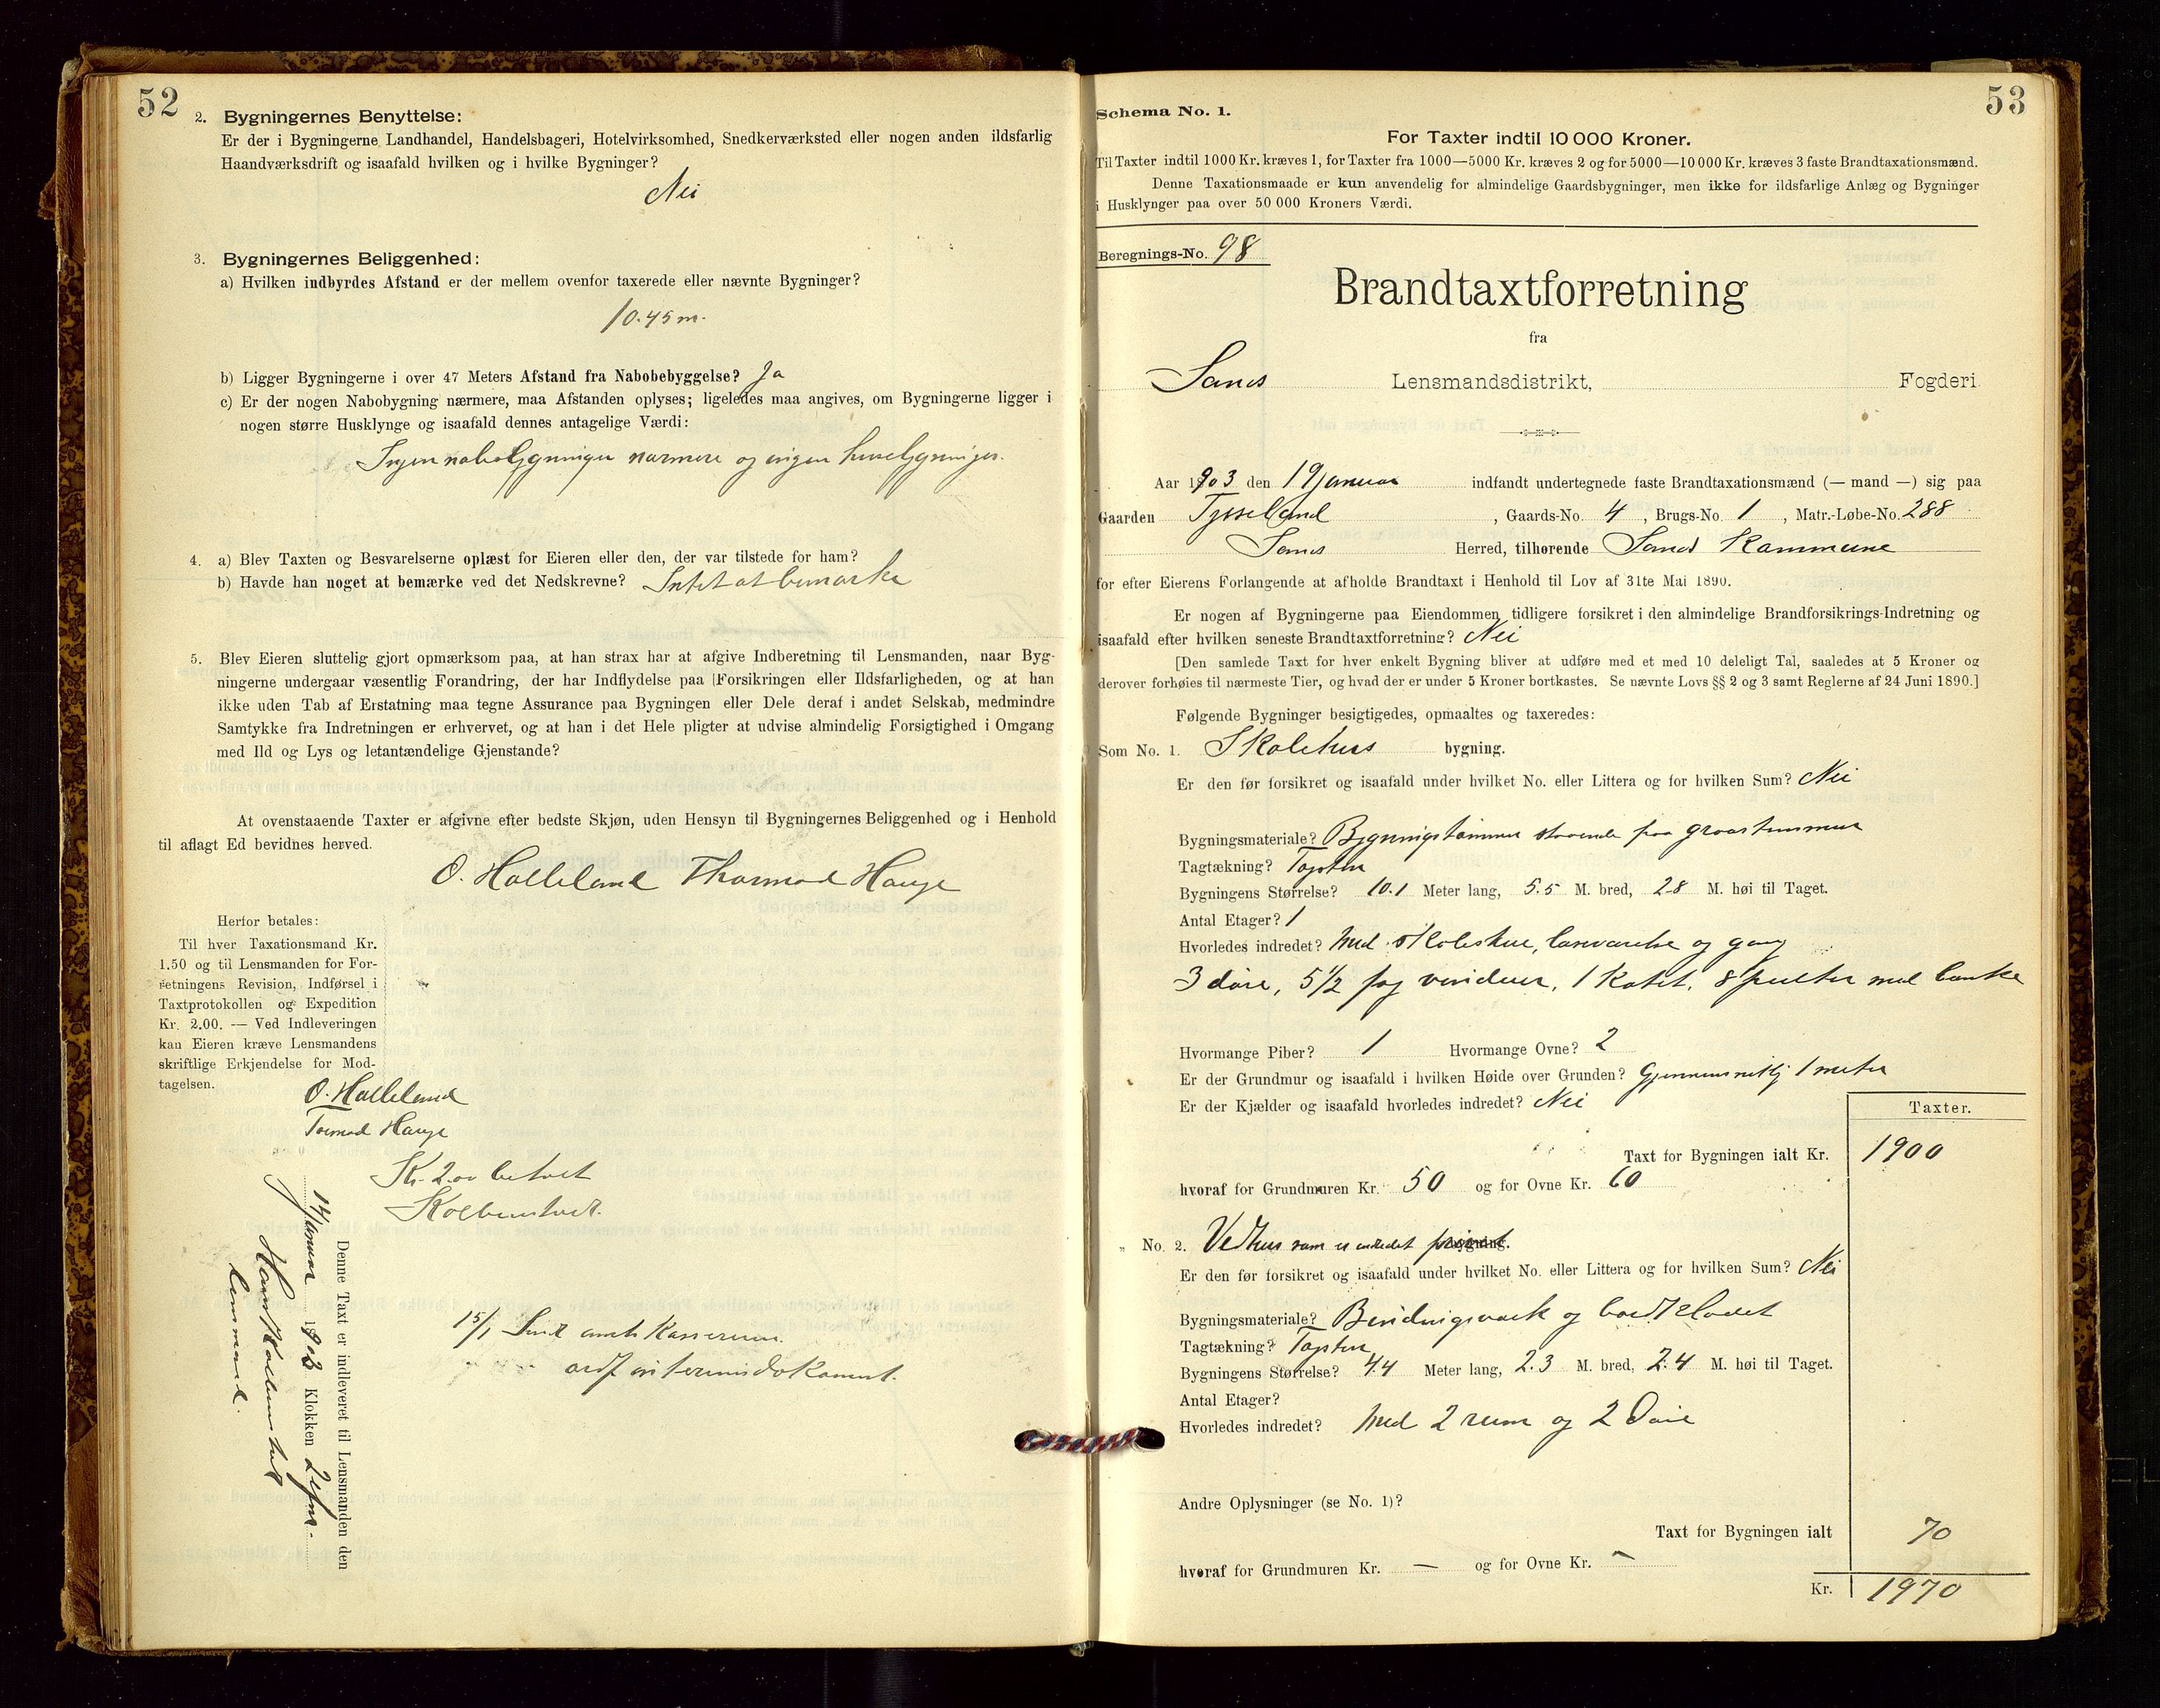 52
2. Bygningernes Benyttelse:
Er der i Bygningerne Landhandel, Handelsbageri, Hotelvirksomhed, Snedkerværksted eller nogen anden ildsfarlig
Haandværksdrift og isaafald hvilken og i hvilke Bygninger?
Nei
3. Bygningernes Beliggenhed:
a) Hvilken indbyrdes Afstand er der mellem ovenfor taxerede eller nævnte Bygninger?
10.45 m.
b) Ligger Bygningerne i over 47 Meters Afstand fra Nabobebyggelse? Ja
c) Er der nogen Nabobygning nærmere, maa Afstanden oplyses; ligeledes maa angives, om Bygningerne ligger i
nogen større Husklynge og isaafald dennes antagelige Værdi:
Ingen nabobygninger nærmere og ingen
4. a) Blev Taxten og Besvarelserne oplæst for Eieren eller den, der var tilstede for ham?
b) Havde han noget at bemærke ved det Nedskrevne? Intet at bemærke
5. Blev Eieren sluttelig gjort opmærksom paa, at han strax har at afgive Indberetning til Lensmanden, naar Byg-
ningerne undergaar væsentlig Forandring, der har Indflydelse paa Forsikringen eller Ildsfarligheden, og at han
ikke uden Tab af Erstatning maa tegne Assurance paa Bygningen eller Dele deraf i andet Selskab, medmindre
Samtykke fra Indretningen er erhvervet, og at han i det Hele pligter at udvise almindelig Forsigtighed i Omgang
med Ild og Lys og letantændelige Gjenstande?
At ovenstaaende Taxter er afgivne efter bedste Skjøn, uden Hensyn til Bygningernes Beliggenhed og i Henhold
til aflagt Ed bevidnes herved.
O. Halleland Thormod Hauge
Herfor betales:
Til hver Taxationsmand Kr.
1.50 og til Lensmanden for For-
retningens Revision, Indførsel i
Taxtprotokollen og Expedition
Kr. 2.00. — Ved Indleveringen
kan Eieren kræve Lensmandens
skriftlige Erkjendelse for Mod-
tagelsen.
O. Halleland
Tormod Hauge
Kr. 2.00 betalt
Kolbenstvedt.
Denne Taxt er indleveret til Lensmanden den
14 januar 1903 Klokken 2
Hans Kolbenstvedt
lensmand.
15/1 Sendt amtskassereren
53
Schema No. 1.
For Taxter indtil 10 000 Kroner.
Til Taxter indtil 1000 Kr. kræves 1, for Taxter fra 1000—5000 Kr. kræves 2 og for 5000—10 000 Kr. kræves 3 faste Brandtaxationsmænd.
Denne Taxationsmaade er kun anvendelig for almindelige Gaardsbygninger, men ikke for ildsfarlige Anlæg og Bygninger
i Husklynger paa over 50 000 Kroners Værdi.
Beregnings-No. 98
Brandtaxtforretning
fra
Sands Lensmandsdistrikt, Fogderi
Aar 1903 den 1 januar indfandt undertegnede faste Brandtaxationsmænd (— mand —) sig paa
Gaarden Tysseland, Gaards-No. 4, Brugs-No. 1, Matr.-Løbe-No. 288
Sands Herred, tilhørende Sands Kommune
for efter Eierens Forlangende at afholde Brandtaxt i Henhold til Lov af 31te Mai 1890.
Er nogen af Bygningerne paa Eiendommen tidligere forsikret i den almindelige Brandforsikrings-Indretning og
isaafald efter hvilken seneste Brandtaxtforretning? Nei
[Den samlede Taxt for hver enkelt Bygning bliver at udføre med et med 10 deleligt Tal, saaledes at 5 Kroner og
derover forhøies til nærmeste Tier, og hvad der er under 5 Kroner bortkastes. Se nævnte Lovs §§ 2 og 3 samt Reglerne af 24 Juni 1890.]
Følgende Bygninger besigtigedes, opmaaltes og taxeredes:
Som No. 1. Skolehus bygning.
Er den før forsikret og isaafald under hvilket No. eller Littera og for hvilken Sum? Nei
Bygningsmateriale? Bygningstømmer staaende paa graastensmur
Tagtækning? Tagsten
Bygningens Størrelse? 10.1 Meter lang, 5.5 M. bred, 2.8 M. høi til Taget.
Antal Etager? 1
Hvorledes indredet? Med skolestue, læreværelse og gang
3 døre, 5 1/2 fag vinduer, 1 Katet, 8 pulter med bænke
Hvormange Piber? 1 Hvormange Ovne? 2
Er der Grundmur og isaafald i hvilken Høide over Grunden? Gjennemsnitlig 1 meter
Er der Kjælder og isaafald hvorledes indredet? Nei
Taxter.
Taxt for Bygningen ialt Kr. 1900
hvoraf for Grundmuren Kr. 50 og for Ovne Kr. 60
" No. 2. Vedhus som er indredet bygning.
Er den før forsikret og isaafald under hvilket No. eller Littera og for hvilken Sum? Nei
Bygningsmateriale? Bindingsværk og bordklædt
Tagtækning? Tagsten
Bygningens Størrelse? 4.4 Meter lang, 2.3 M. bred, 2.4 M. høi til Taget.
Antal Etager?
Hvorledes indredet? Med 2 rum og 2 Døre
Andre Oplysninger (se No. 1)?
Taxt for Bygningen ialt 70
hvoraf for Grundmuren Kr. — og for Ovne Kr. —
Kr. 1970